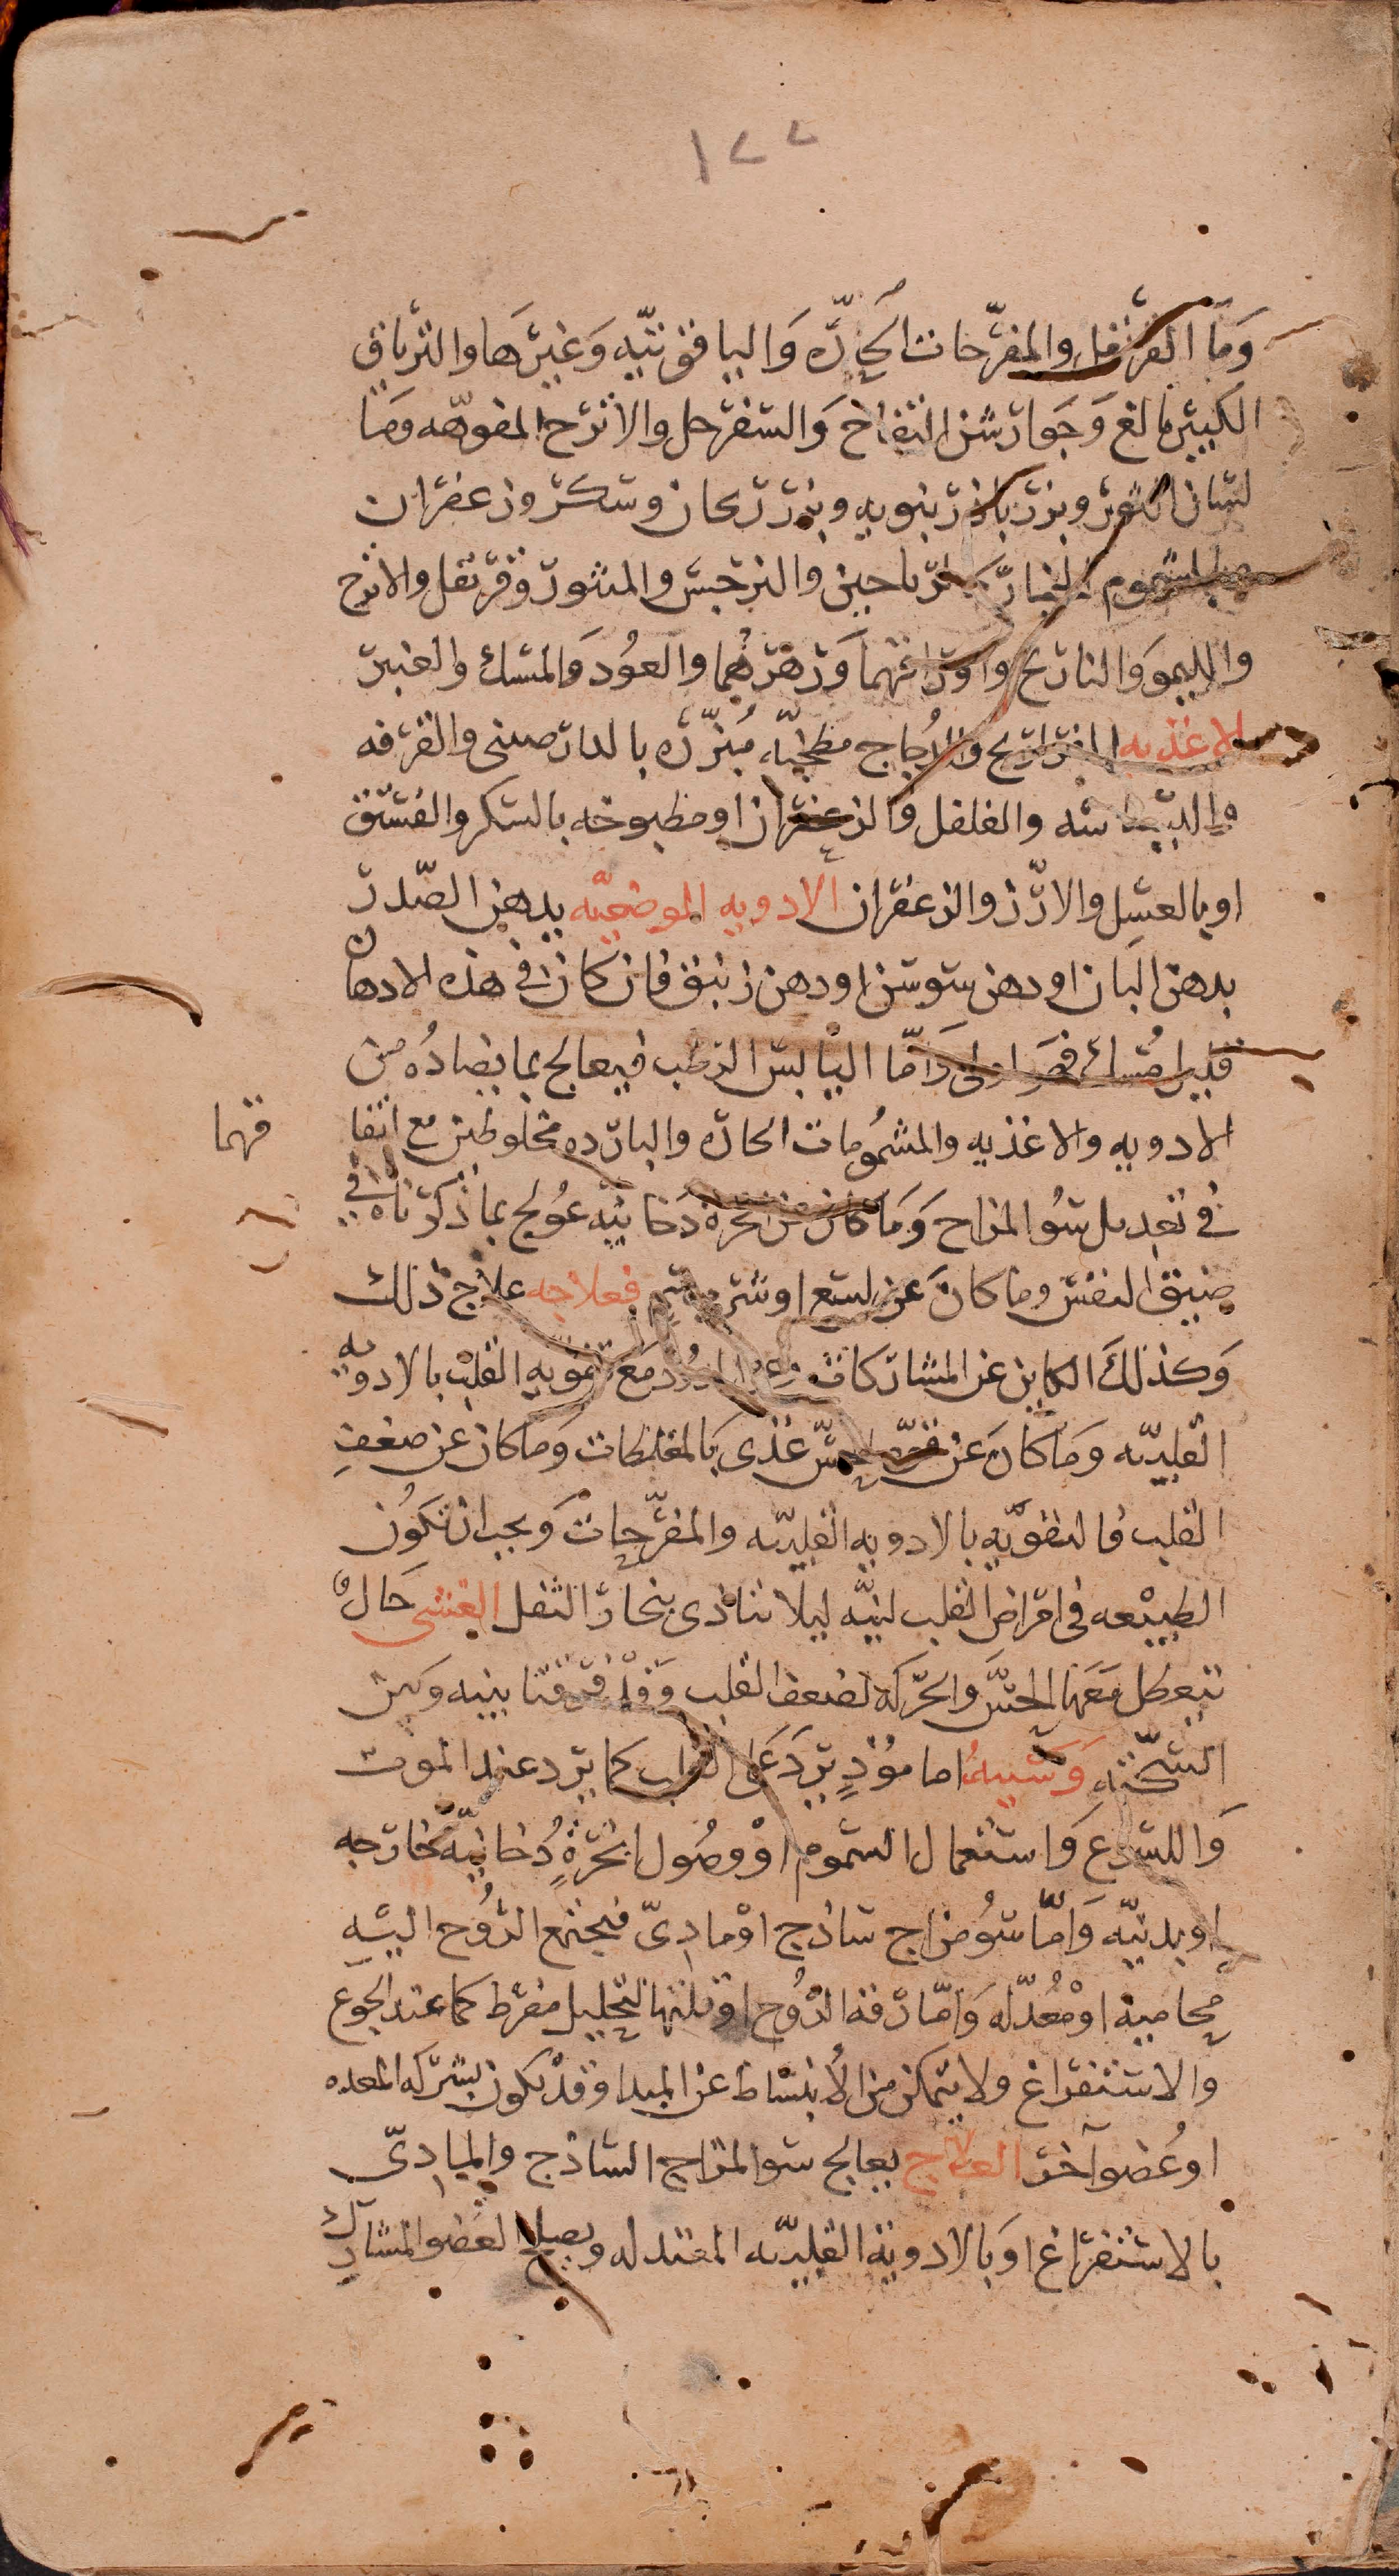 ١٢٢
وما القرنفل والمفرحات الحارّه واليا قوتيّه وغيرها والترياق
الكبير بالغ وجوارشن التفاح والسفرجل والاترج المفوهه وما
لسان الثور وبزر باذرنبويه وبزر ريحان وسكر وزعفران
المشموم الرياحين والنرجس والمنثور وقرنفل والاترج
والليمو والنارنج واوراقهما وزهرهما والعود والمسك والعنبر
الاغذيه الفراريج والدجاج مطجنّه مبزّره بالدارصينى والقرفه
والبسباسه والفلفل والزعفران او مطبوخه بالسكر والفستق
او بالعسل والارز والزعفران الادويه الموضعيّه يدهن الصدر
بدهن البان او دهن سوسن او دهن زنبق فان كان فى هذه الادهان
قليل مسك فهو اولى واما اليابس الرطب فيعالج بما يضاده من
الادويه والاغذيه والمشمومات الحاره والبارده مخلوطين مع اتفا
قهما
فى تعديل سو المزاج وما كان من ابخرة دخانيّه عولج بما ذكرناه فى
ضيق النفس وما كان عن لسع او شرب سم فعلاجه علاج ذلك
وكذلك الكاين عن المشاركات مع تقويه القلب بالادويه
القلبيّه وما كان عن قوّه حسّ غذى بالمغلظات وما كان عن ضعف
القلب فالتقويه بالادويه القلبيّه والمفرّحات ويجب ان تكون
الطبيعه فى امراض القلب لينّه ليلا تتاذى ببخار الثفل الغشى حال
تتعطل معها الحسّ والحركه لضعف القلب وقد فرقنا بينه وبين
السكته وسببه اما مؤذٍ يرد على القلب كما يرد عند الموت
واللسع واستعمال السموم او وصول ابخرةٍ دُخانيّه خارجه
او بدنيّه واما سو مزاج ساذج او مادىّ فيجتمع الرّوح اليه
محاميه او مُعدّله واما رقه الرّوح او قلتها لتحليل مفرط كما عند الجوع
والاستفراغ ولا يتمكن من الانبساط عن المبدا وقد يكون بشركه المعده
او عضو آخر العلاج يعالج سو المزاج الساذج والمادىّ
بالاستفراغ او بالادوية القلبيّه المعتدله ويصلح العضو المشارك